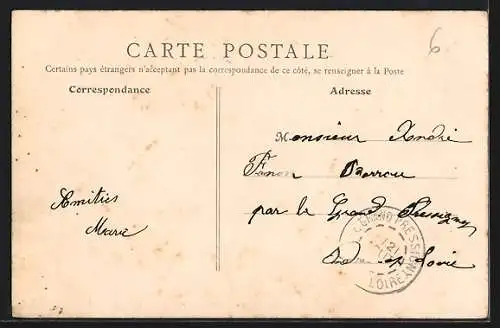 6
CARTE POSTALE
Certains pays étrangers n'acceptant pas la correspondance de ce côté, se renseigner à la Poste
Correspondance
Adresse
Monsieur André
Barrou
par le Grand Pressigny
Indre et Loire
Amitiés
Marie
GRAND PRESSIGNY